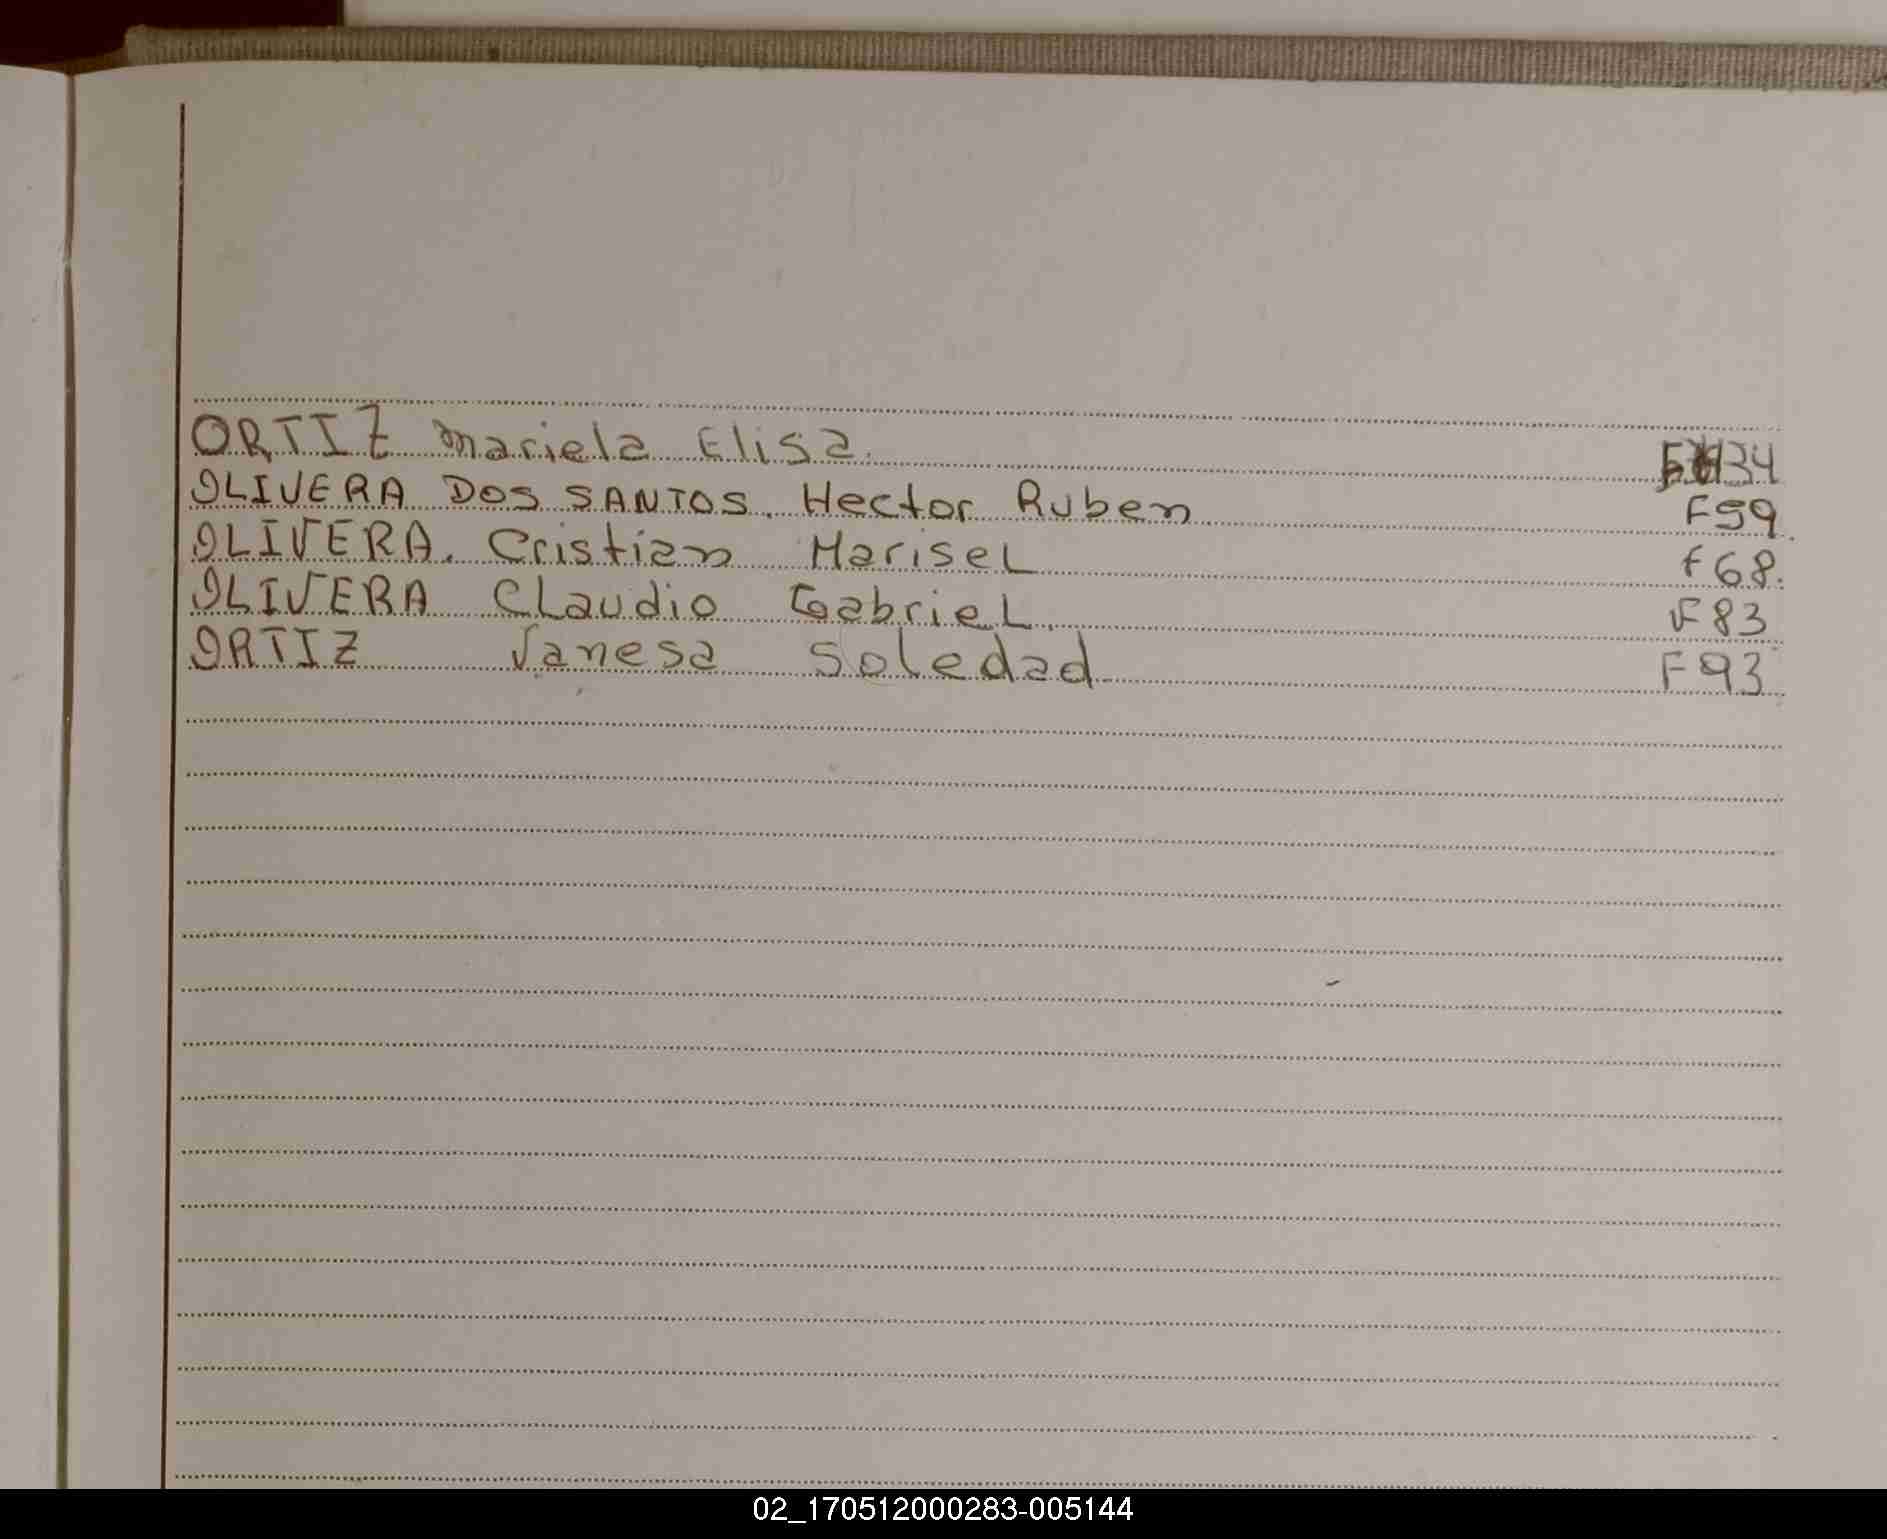 ORTIZ Mariela Elisa. 34
OLIVERA DOS SANTOS. Hector Ruben F59
OLIVERA. Cristian Marisel F68.
OLIVERA Claudio Gabriel. F83
ORTIZ Vanesa Soledad F93
02_170512000283-005144